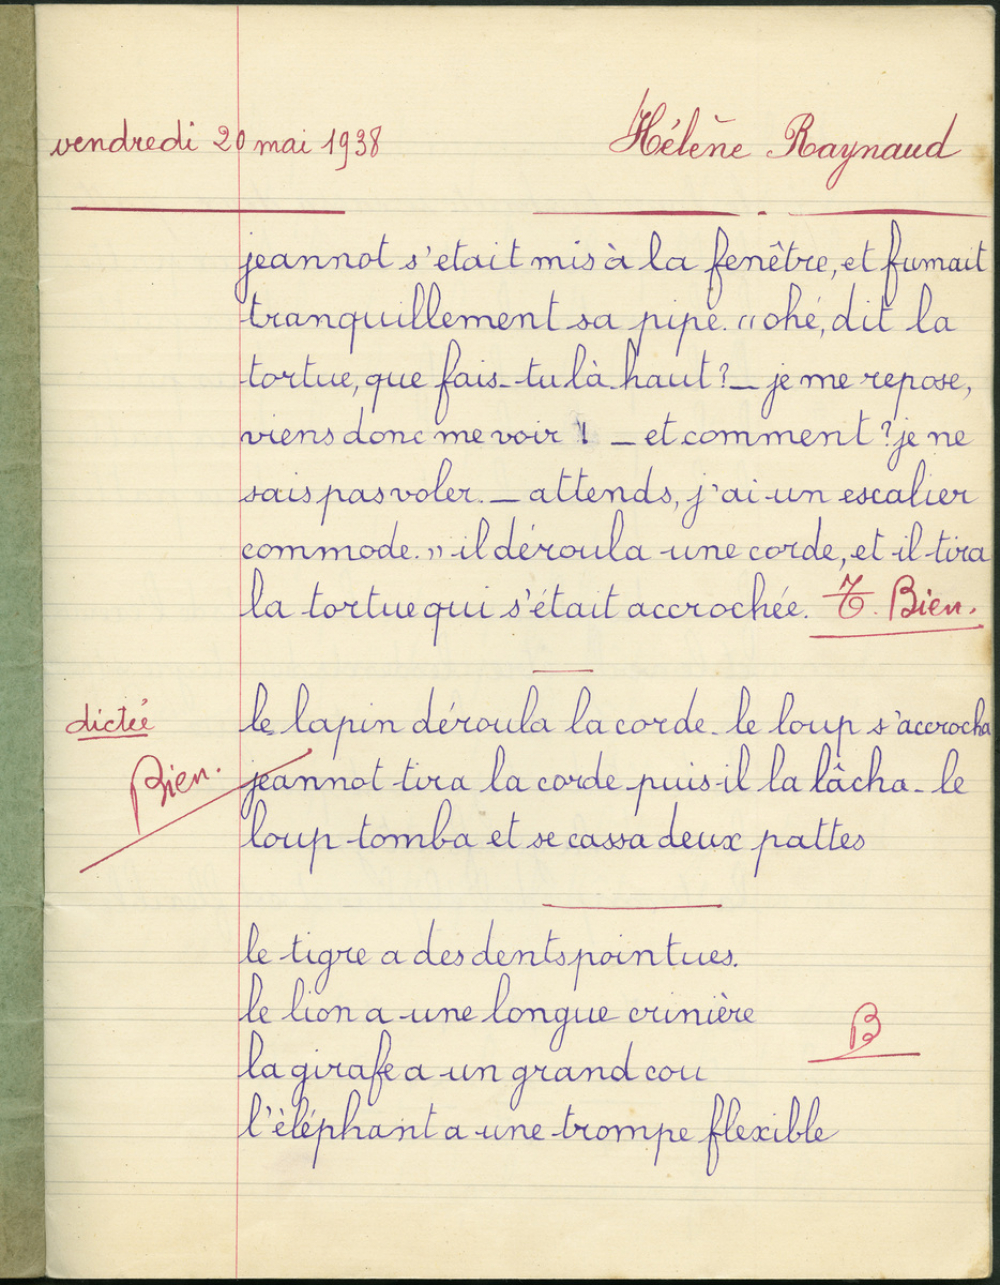 vendredi 20 mai 1938 Hélène Raynaud
jeannot s'etait mis à la fenêtre, et fumait
tranquillement sa pipe. "ohé, dit la
tortue, que fais-tu là-haut? _ je me repose,
viens donc me voir ! _ et comment ? je ne
sais pas voler. _ attends, j'ai un escalier
commode." il déroula une corde, et il tira
la tortue qui s'était accrochée. T. Bien.
dictée le lapin déroula la corde. le loup s'accrocha
Bien. jeannot tira la corde puis il la lâcha. le
loup tomba et se cassa deux pattes
le tigre a des dents pointues.
le lion a une longue crinière
B
la girafe a un grand cou
l'éléphant a une trompe flexible